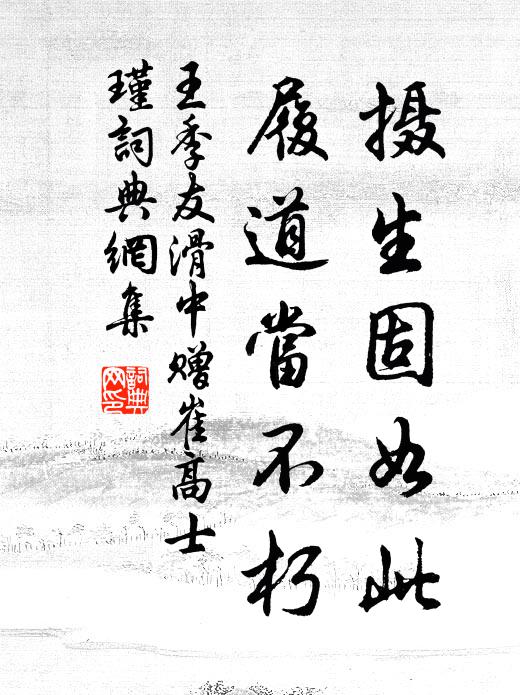 摄生固如此
履道當不朽
王季友滑中赠崔高士
瑾詞典網集
詞典网印